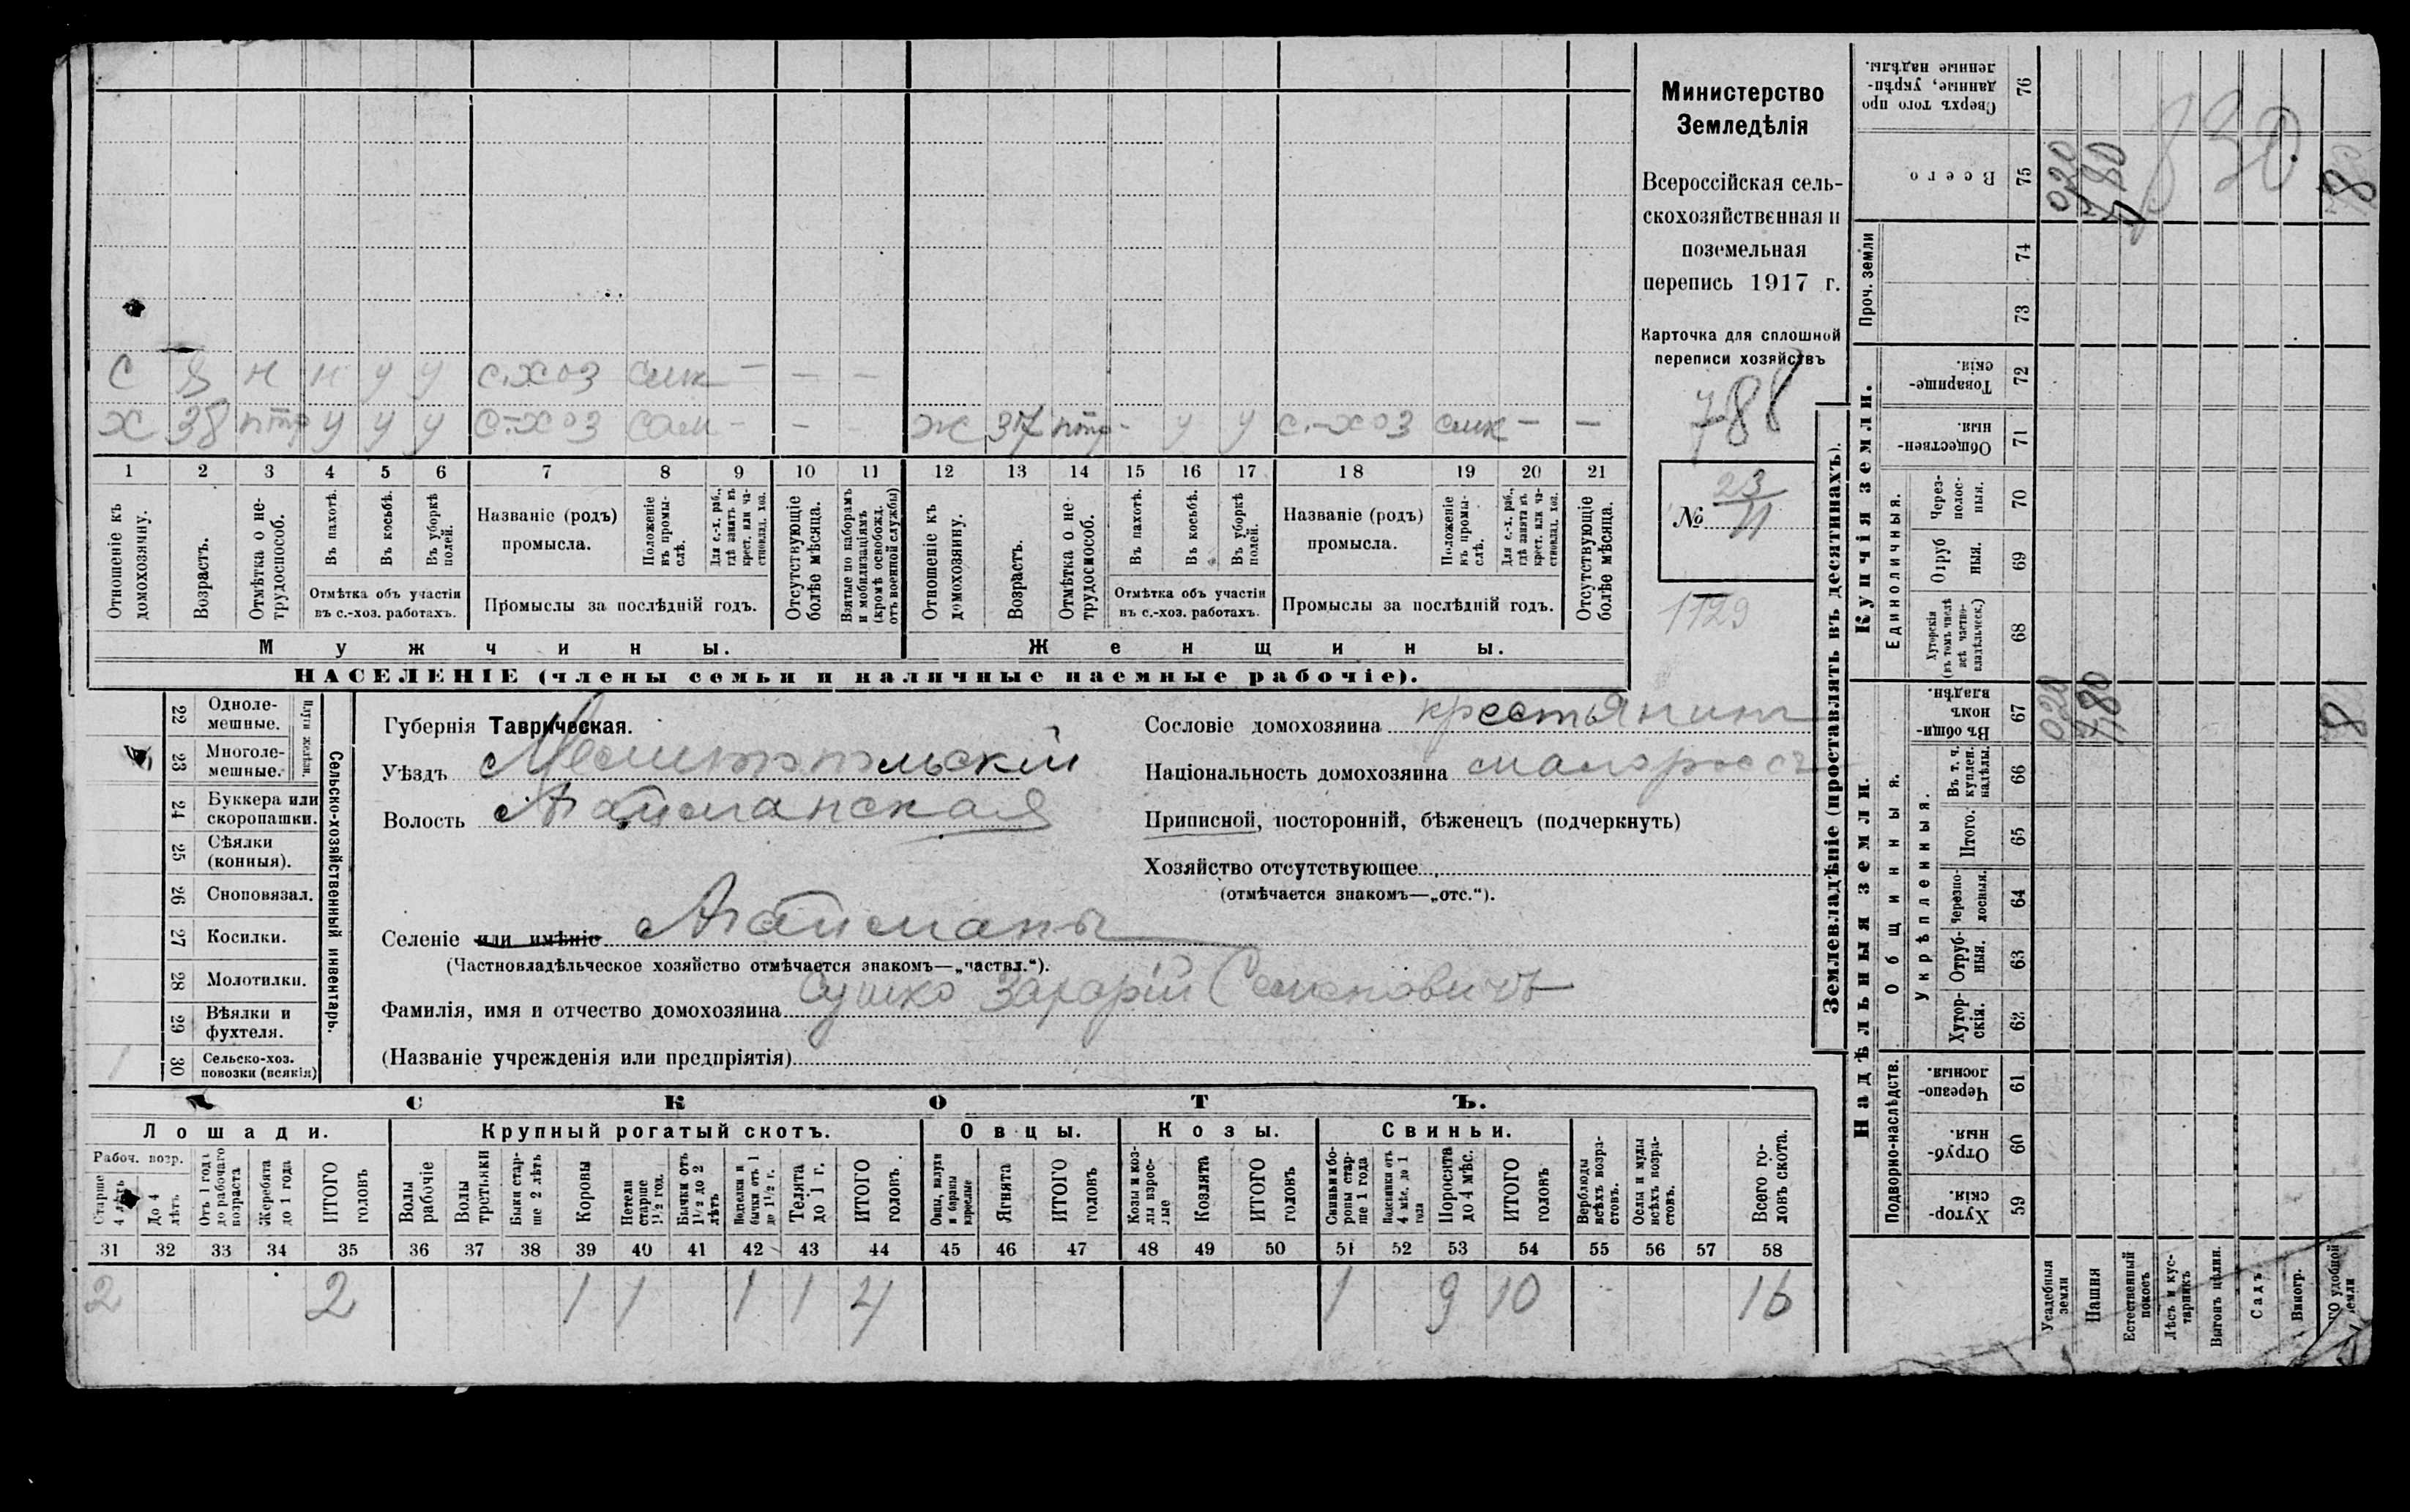 С 8 н н у у с.хоз Самк — — —
Х 38 птр у у у с.-хоз сам - - - Ж 37 птр - у у с.-хоз Самк — —
1 2 3 4 5 6 7 8 9 10 11 12 13 14 15 16 17 18 19 20 21
Отношеніе къ домохозяину.
Возрастъ.
Отмѣтка о нетрудоспособ.
Въ пахотѣ.
Въ косьбѣ.
Въ уборкѣ полей.
Отмѣтка объ участіи въ с.-хоз. работахъ.
Названіе (родъ) промысла.
Положеніе въ промыслѣ.
Для с.-х. раб., гдѣ занятъ въ крест. или частновлад. хоз.
Промыслы за послѣдній годъ.
Отсутствующіе болѣе мѣсяца.
Взятые по наборамъ и мобилизаціямъ (кромѣ освобожд. отъ военной службы)
Отношеніе къ домохозяину.
Возрастъ.
Отмѣтка о нетрудоспособ.
Въ пахотѣ.
Въ косьбѣ.
Въ уборкѣ полей.
Отмѣтка объ участіи въ с.-хоз. работахъ.
Названіе (родъ) промысла.
Положеніе въ промыслѣ.
Для с.-х. раб., гдѣ занята въ крест. или частновлад. хоз.
Промыслы за послѣдній годъ.
Отсутствующіе болѣе мѣсяца.
Мужчины. Женщины.
НАСЕЛЕНІЕ (члены семьи и наличные наемные рабочіе).
Министерство
Земледѣлія
Всероссійская сель-
скохозяйственная и
поземельная
перепись 1917 г.
Карточка для сплошной
переписи хозяйствъ
788
№ 23/11
1129
22 Одноле-
мешные.
23 Многоле-
мешные.
Плуги желѣзн.
24 Буккера или
скоропашки.
25 Сѣялки
(конныя).
26 Сноповязал.
27 Косилки.
28 Молотилки.
29 Вѣялки и
фухтеля.
1 30 Сельско-хоз.
повозки (всякія)
Сельско-хозяйственный инвентарь.
Губернія Таврическая.
Уѣздъ Мелитопольскій
Волость Агайманская
Селеніе или имѣніе Агайманы
(Частновладѣльческое хозяйство отмѣчается знакомъ—„частвл.“).
Фамилія, имя и отчество домохозяина Сушко Захарій Семеновичъ
(Названіе учрежденія или предпріятія)
Сословіе домохозяина крестьянинъ
Національность домохозяина малороссъ
Приписной, посторонній, бѣженецъ (подчеркнуть)
Хозяйство отсутствующее
(отмѣчается знакомъ—„отс.“).
СКОТЪ.
Лошади. Крупный рогатый скотъ. Овцы. Козы. Свиньи.
Рабоч. возр.
Старше 4 лѣтъ
До 4 лѣтъ
Отъ 1 года до рабочаго возраста
Жеребята до 1 года
ИТОГО головъ
Волы рабочіе
Волы третьяки
Быки старше 2 лѣтъ
Коровы
Нетели старше 1½ год.
Бычки отъ 1½ до 2 лѣтъ
Подтелки и бычки отъ 1 до 1½ г.
Телята до 1 г.
ИТОГО головъ
Овцы, валухи и бараны взрослые
Ягнята
ИТОГО головъ
Козы и козлы взрослые
Козлята
ИТОГО головъ
Свиньи и боровы старше 1 года
Подсвинки отъ 4 мѣс. до 1 года
Поросята до 4 мѣс.
ИТОГО головъ
Верблюды всѣхъ возрастовъ.
Ослы и мулы всѣхъ возрастовъ.
Всего головъ скота.
31 32 33 34 35 36 37 38 39 40 41 42 43 44 45 46 47 48 49 50 51 52 53 54 55 56 57 58
2 2 1 1 1 1 4 1 9 10 16
Землевладѣніе (проставлять въ десятинахъ).
Надѣльныя земли. Купчія земли.
Проч. земли
Подворно-наслѣдств.
Общинныя.
Укрѣпленныя.
Единоличныя.
Хуторскія 59
Отрубныя 60
Черезполосныя. 61
Хуторскія. 62
Отрубныя. 63
Черезполосныя. 64
Итого. 65
Въ т. ч. куплен. надѣлы. 66
Въ общинномъ владѣн. 67
Хуторскія (въ томъ числѣ всѣ частновладѣльческ.) 68
Отрубныя. 69
Черезполосныя. 70
Общественныя. 71
Товарищескія. 72
73
74
Всего 75
Сверхъ того проданные, укрѣпленные надѣлы. 76
Усадебныя земли
Пашня
Естественный покосъ
Лѣсъ и кустарникъ
Выгонъ цѣлин.
Садъ
Виногр.
удобной земли
020 780 8
020 780 830 8